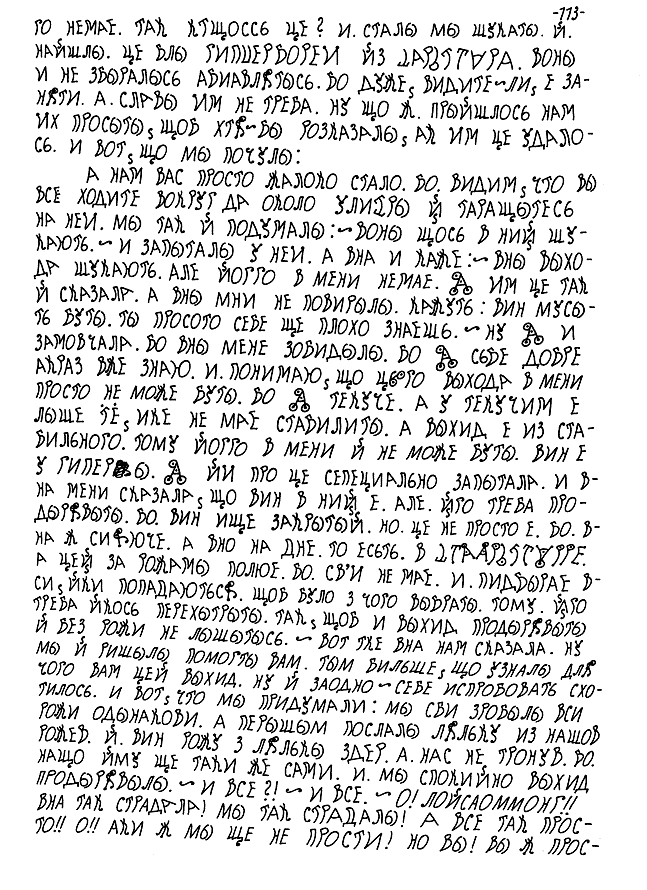 -773-
ГО НЕМАЕ. ТАК КТЩОССЬ ЦЕ? И. СТАЛЫ МЫ ШУКАТЫ. Й.
НАЙШЛЫ. ЦЕ БЛЫ ГИПЕРБОРЕИ ЙЗ ВОНЫ
И НЕ ЗБЫРАЛЫСЬ АВИАВЛЯТЫСЬ. БО ДУЖЕ, ВИДИТЕ~ЛИ, Е ЗА-
НЯТИ. А. СЛАВЫ ИМ НЕ ТРЕБА. НУ ЩО Ж. ПРЫЙШЛОСЬ НАМ
ИХ ПРОСЫТЫ, ЩОБ ХТЯ~БЫ РОЗКАЗАЛЫ, АК ИМ ЦЕ УДАЛО-
СЬ. И ВОТ, ЩО МЫ ПОЧУЛЫ:
А НАМ ВАС ПРОСТО ЖАЛОКО СТАЛО. БО. ВИДИМ, ЧТО ВЫ
ВСЕ ХОДИТЕ ВОКРУГ ДА ОКОЛО Й ТАРАЩЫТЕСЬ
НА НЕИ. МЫ ТАК Й ПОДУМАЛЫ:~ВОНЫ ЩОСЬ В НИЙ ШУ-
КАЮТЬ.~И ЗАПЫТАЛЫ У НЕИ. А ВНА И КАЖЕ:~ВНЫ ВЫХО-
ДА ШУКАЮТЬ. АЛЕ ЙОГГО В МЕНИ НЕМАЕ. ИМ ЦЕ ТАК
Й СКАЗАЛА. А ВНЫ МНИ НЕ ПОВИРЫЛЫ. КАЖУТЬ: ВИН МУСЫ-
ТЬ БУТЫ. ТЫ ПРОСОТО СЕБЕ ЩЕ ПЛОХО ЗНАЕШЬ.~НУ И
ЗАМОВЧАЛА. БО ВНЫ МЕНЕ ЗОБИДЫЛЫ. БО СЕБЕ ДОБРЕ
АКРАЗ ВЖЕ ЗНАЮ. И. ПОНИМАЮ, ЩО ЦЬОГО ВЫХОДА В МЕНИ
ПРОСТО НЕ МОЖЕ БУТЫ. БО ТЕКУЧЕ. А У ТЕКУЧИМ Е
ЛЫШЕ ТЕ, ИКЕ НЕ МАЕ СТАБИЛИТЫ. А ВЫХИД Е ИЗ СТА-
БИЛЬНОГО. ТОМУ ЙОГГО В МЕНИ Й НЕ МОЖЕ БУТЫ. ВИН Е
У ЙИ ПРО ЦЕ СЕПЕЦИАЛЬНО ЗАПЫТАЛА. И В-
НА МЕНИ СКАЗАЛА, ЩО ВИН В НИЙ Е. АЛЕ. ЙГО ТРЕБА ПРО-
ДЫРЯВЫТЫ. БО. ВИН ИЩЕ ЗАКРЫТЫЙ. НО. ЦЕ НЕ ПРОСТО Е. БО. В-
НА Ж СИЯЮЧЕ. А ВНО НА ДНЕ. ТО ЕСЬТЬ. В
А ЦЕЙ ЗА РОЖАМЫ ПОЛЮЕ. БО. СВ'И НЕ МАЕ. И. ПИДБЫРАЕ В-
СИ, ЙКИ ПОПАДАЮТЬСЯ. ЩОБ БУЛО З ЧОГО ВЫБРАТЫ. ТОМУ. ЙГО
ТРЕБА ЙКОСЬ ПЕРЕХЫТРЫТЫ. ТАК, ЩОБ И ВЫХИД ПРОДЫРЯВЫТЫ
Й БЕЗ РОЖИ НЕ ЛЫШЫТЫСЬ.~ВОТ ТКЕ ВНА НАМ СКАЗАЛА. НУ
МЫ Й РИШЫЛЫ ПОМОГТЫ ВАМ. ТЫМ БИЛЬШЕ, ЩО УЗНАЛЫ ДЛЯ
ЧОГО ВАМ ЦЕЙ ВЫХИД. НУ Й ЗАОДНО~СЕБЕ ИСПРОБОВАТЬ СХО-
ТИЛОСЬ. И ВОТ, ЧТО МЫ ПРИДУМАЛИ: МЫ СВИ ЗРОБЫЛЫ ВСИ
РОЖИ ОДЫНАКОВИ. А ПЕРЫШЫМ ПОСЛАЛЫ ЛЯЛЬКУ ИЗ НАШОВ
РОЖЕВ. Й. ВИН РОЖУ З ЛЯЛЬКЫ ЗДЕР. А. НАС НЕ ТРОНУВ. БО.
НАЩО ЙМУ ЩЕ ТАКИ ЖЕ САМИ. И. МЫ СПОКИЙНО ВЫХИД
ПРОДЫРЯВЫЛЫ.~И ВСЕ?!~И ВСЕ.~О! ЛОЙСАОММОНГ!!
ВНА ТАК СТРАДАЛА! МЫ ТАК СТРАДАЛЫ! А ВСЕ ТАК ПРОС-
ТО!! О!! АКИ Ж МЫ ЩЕ НЕ ПРОСТИ! НО ВЫ! ВЫ Ж ПРОС-